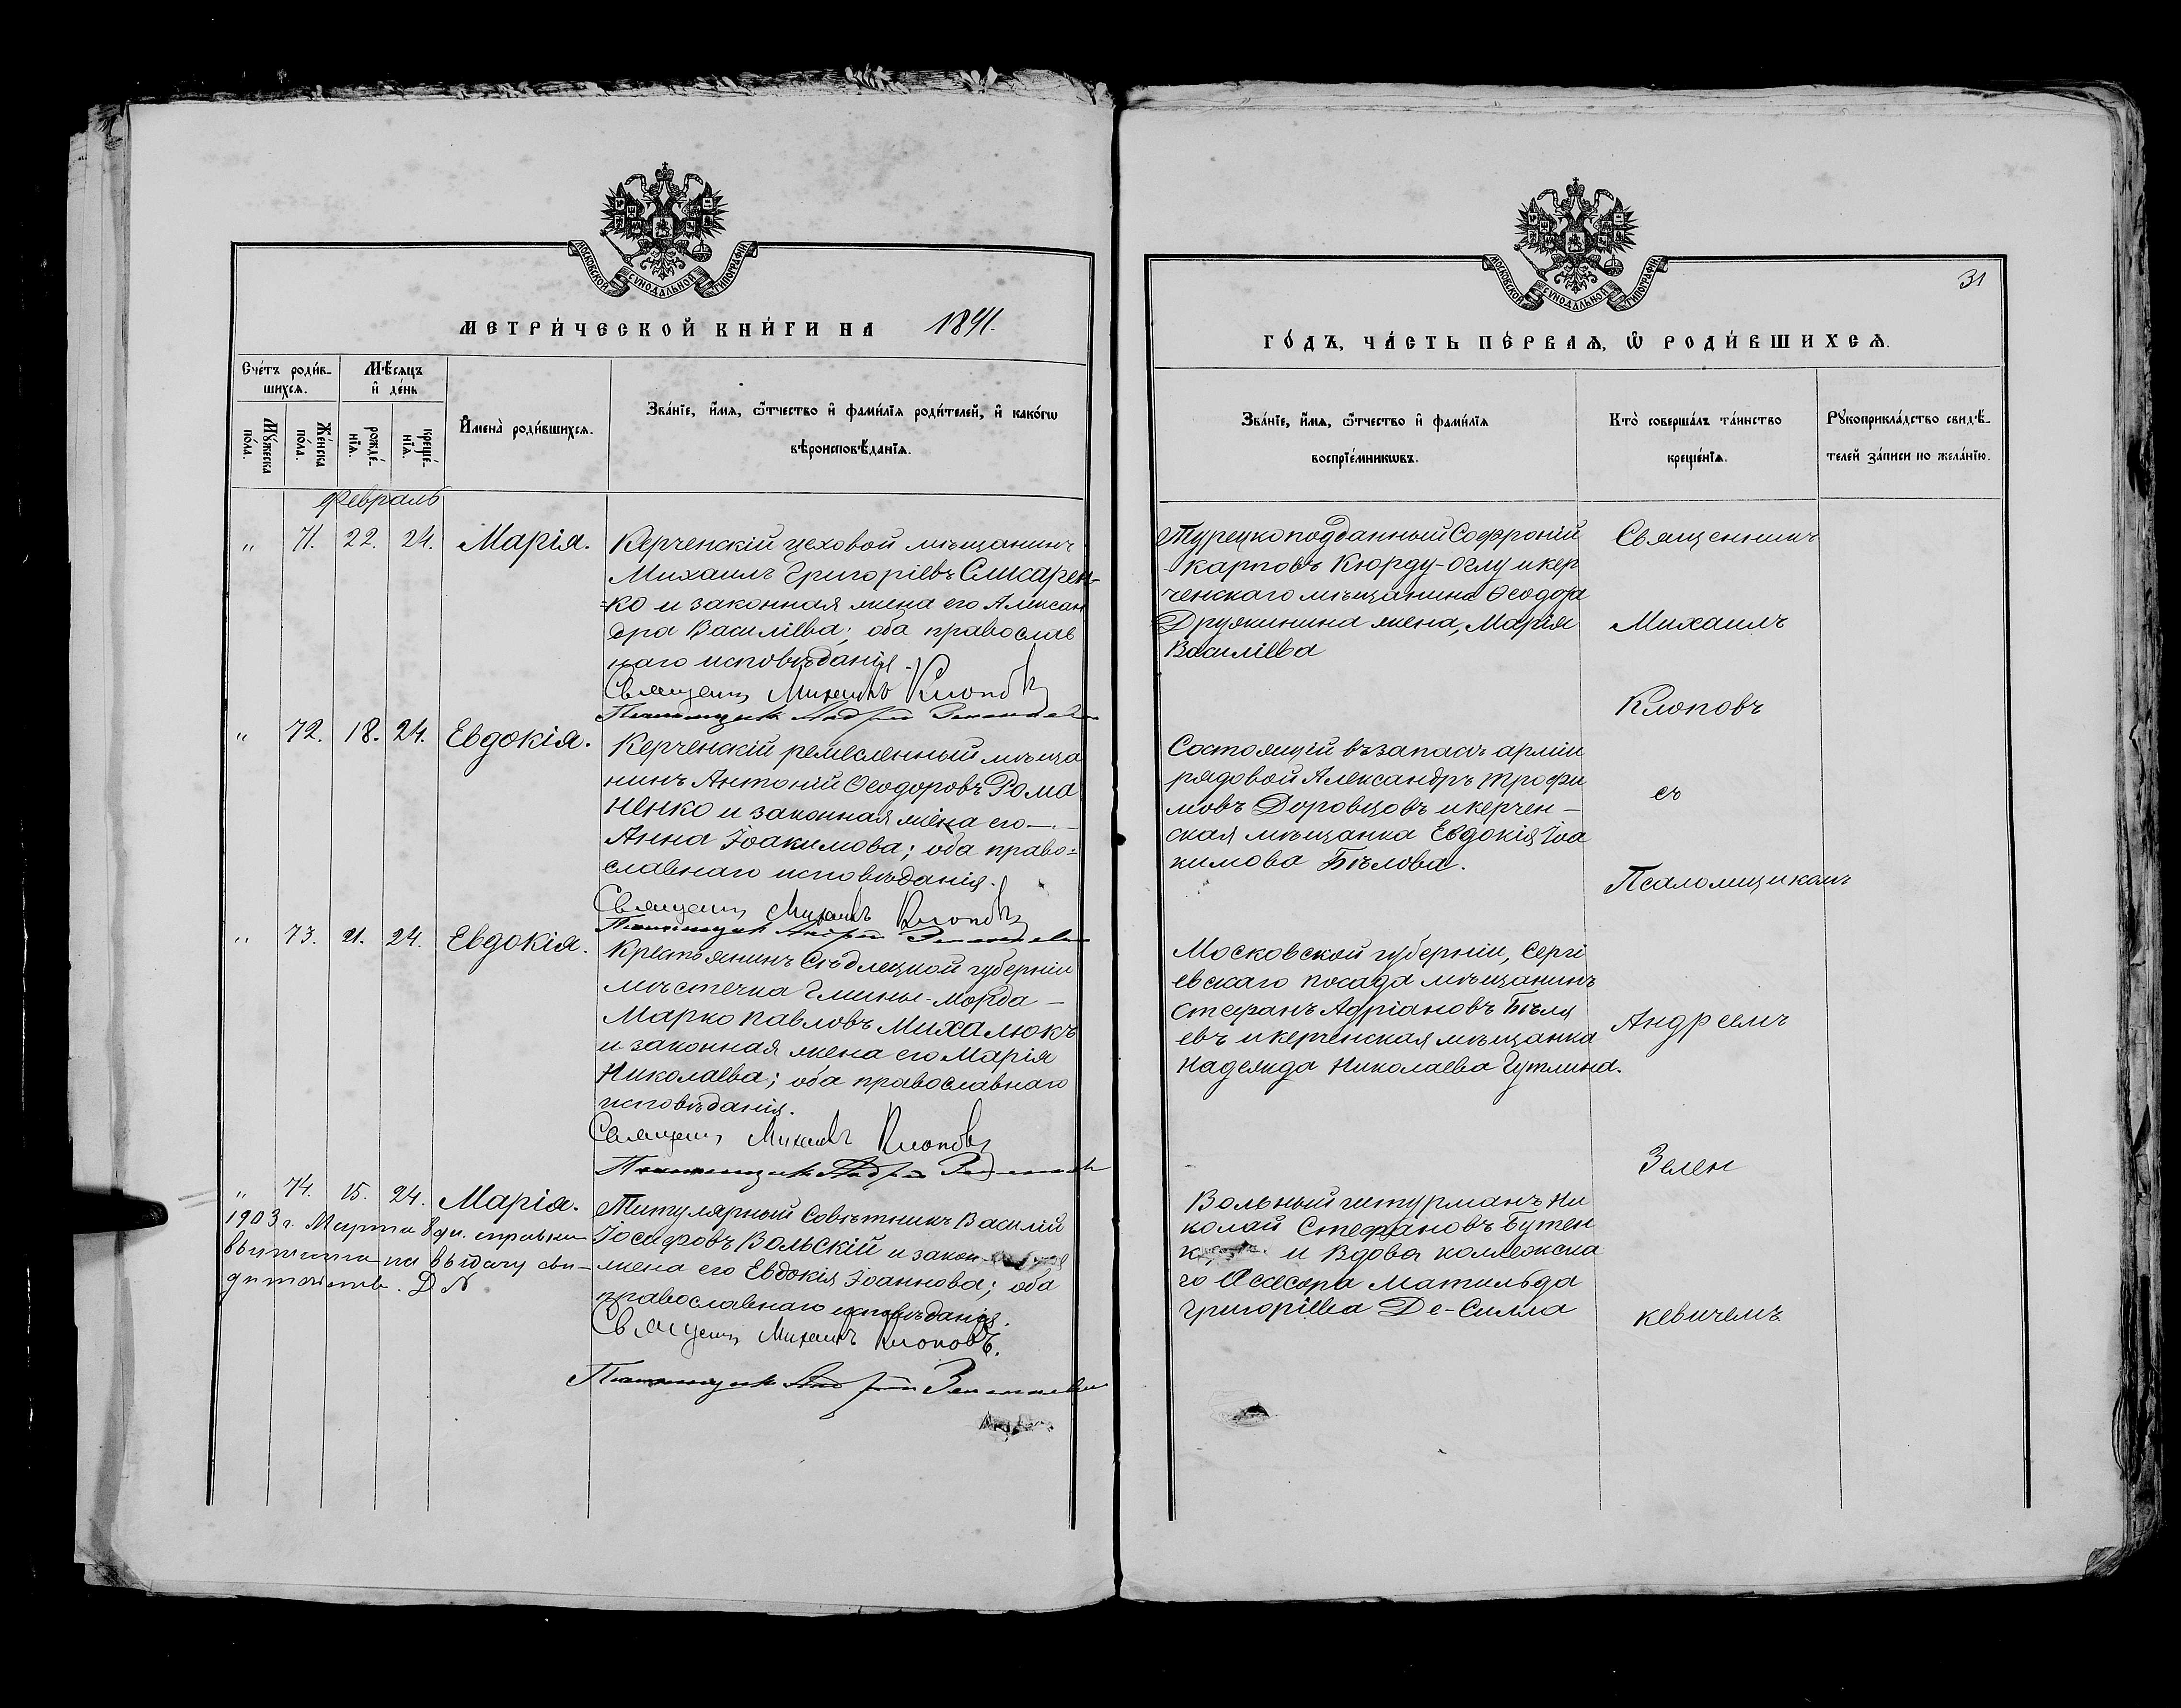 МОСКОВСКОЙ СѴНОДАЛЬНОЙ ТИПОГРАФІИ
МЕТРИ́ЧЕСКОЙ КНИ́ГИ НА 1891.
Сче́тъ роди́в-
шихся.
Мѣ́сяцъ
и҆ де́нь
Мꙋ́жеска
по́ла.
Же́нска
по́ла.
рожде́-
нїѧ.
креще́-
нїѧ.
И҆мена̀ роди́вшихсѧ.
Зва́нїе, и҆́мѧ, ѻ҆́тчество и҆ фами́лїѧ роди́телей, и҆ како́гѡ
вѣроисповѣ́данїѧ.
Февраль
" 71. 22. 24. Марія.
Керченскій цеховой мѣщанинъ
Михаилъ Григоріевъ Слисарен-
=ко и законная жена его Алексан
дра Василіева; оба православ
наго исповѣданія.
Священ Михаилъ Клоповъ
" 72. 18. 24. Евдокія.
Керченскій ремесленный мѣща
нинъ Антоній Ѳеодоровъ Рома
ненко и законная жена его —
Анна Іоакимова; оба право=
славнаго исповѣданія.
Священ Михаилъ Клоповъ
" 73. 21. 24. Евдокія.
Крестьянинъ Сѣдлецкой губерніи
мѣстечка Гмины-Морда —
Марко Павловъ Михалюкъ
и законная жена его Марія
Николаева; оба православнаго
исповѣданія.
Священ Михаилъ Клоповъ
" 74. 15. 24. Марія.
Титулярный Совѣтникъ Василій
Іосифовъ Вольскій и закон
жена его Евдокія Іоаннова; оба
православнаго исповѣданія.
Священ Михаилъ Клоповъ.
Псаломщикъ Андрей Зеленкевичъ
1903 г. Марта 8 дн. справка
на выдачу сви-
31
МОСКОВСКОЙ СѴНОДАЛЬНОЙ ТИПОГРАФІИ
ГО́ДЪ, ЧА́СТЬ ПЕ́РВАѦ, Ѡ҆ РОДИ́ВШИХСѦ.
Зва́нїе, и҆́мѧ, ѻ҆́тчество и҆ фами́лїѧ
воспрїе́мникѡвъ.
Кто̀ соверша́лъ та́инство
креще́нїѧ.
Рꙋкоприкла́дство свидѣ́-
телей за́писи по жела́нїю.
Турецкоподданный Софроній
Карповъ Кюрду-Оглу и кер
ченскаго мѣщанина Ѳеодора
Дружинина жена, Марія
Василіева
Состоящій въ запасѣ арміи
рядовой Александръ Трофи
мовъ Доровцовъ и керчен-
ская мѣщанка Евдокія Іоа
кимова Бѣлова.
Московской губерніи, Сергі
евскаго посада мѣщанинъ
Стефанъ Адріановъ Бѣля
евъ и керченская мѣщанка
Надежда Николаева Гутлина.
Вольный штурманъ Ни
колай Стефановъ Бутен
и Вдова коллежска
го Асесора Матильда
Григоріева Де-Силла
Священникъ
Михаилъ
Клоповъ
съ
Псаломщикомъ
Андреемъ
Зелен
кевичемъ.